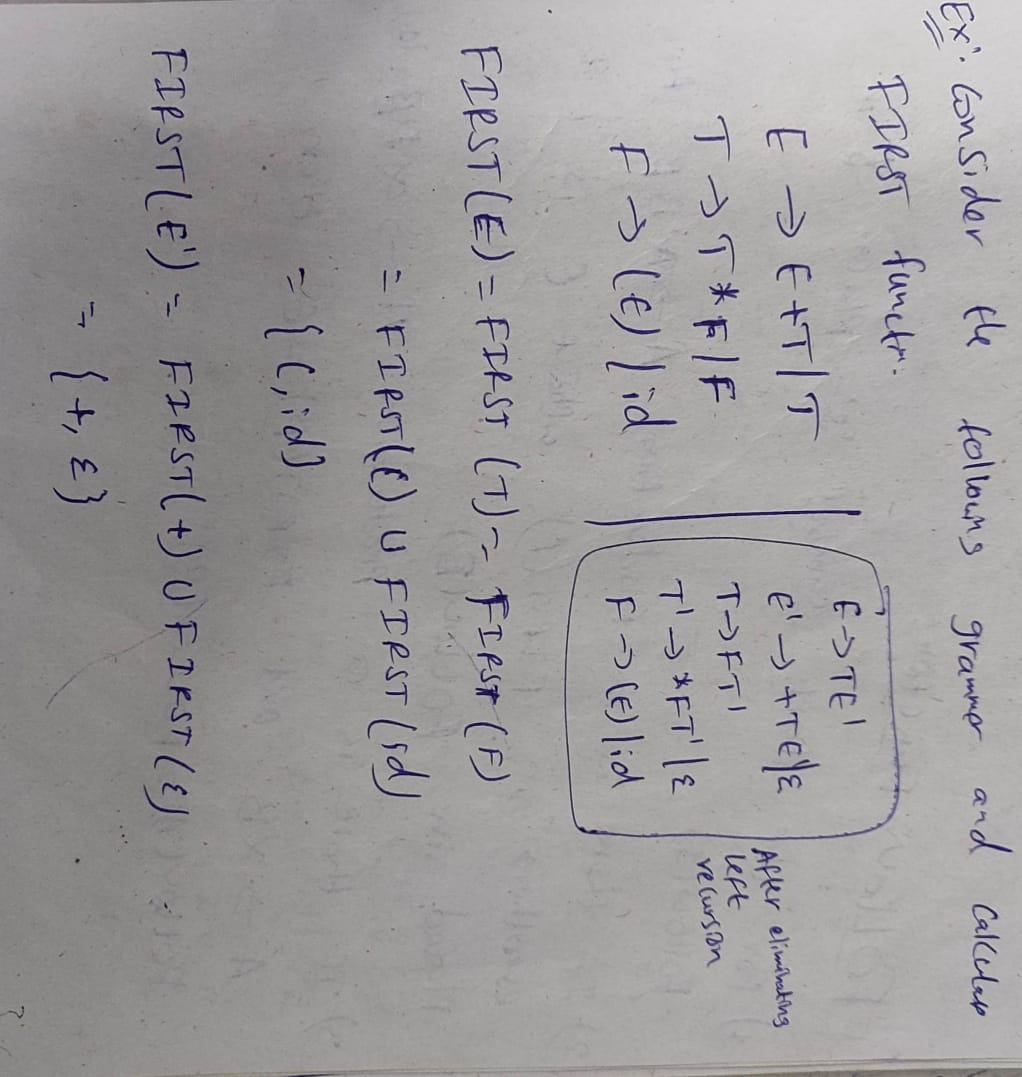 Ex: Consider the following grammer and Calculate
FIRST functn.
E → E+T/T
T → T*F/F
F → (E)/id
E→TE'
E'→+TE'/ε
T→FT'
T'→*FT'/ε
F→(E)/id
After eliminating
left
recursion
FIRST(E) = FIRST (T) = FIRST(F)
= FIRST(() ∪ FIRST(id)
= {(,id}
FIRST(E') = FIRST(+) ∪ FIRST(ε)
= {+, ε}